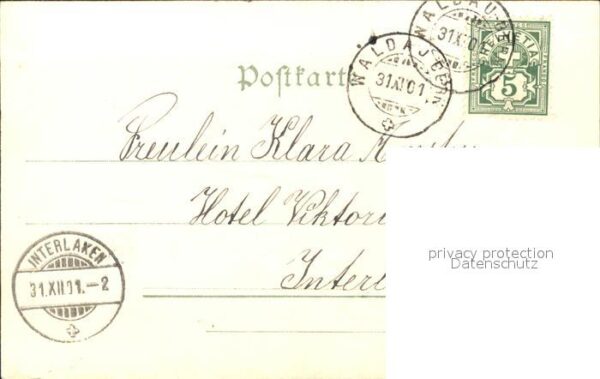 WALDAU-BERN
31.XII.01
WALDAU-BERN
31.XII.01
HELVETIA
5
Postkart
Freulein Klara
Hotel Viktori
Interl
INTERLAKEN
31.XII.01.–2
privacy protection
Datenschutz